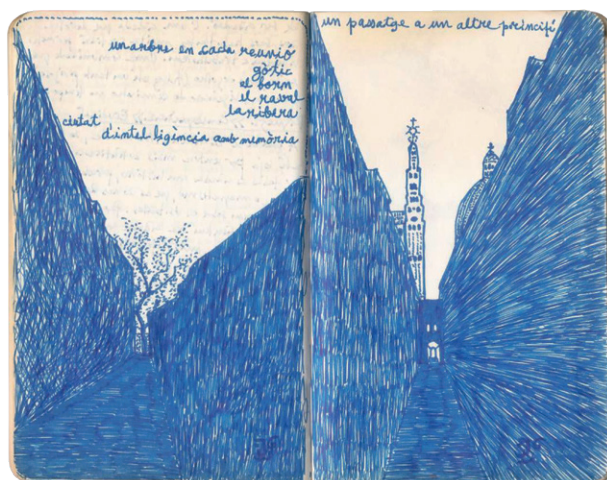 un arbre en cada reunió
gòtic
el born
el raval
la ribera
ciutat
d'intel·ligència amb memòria
un passatge a un altre principi